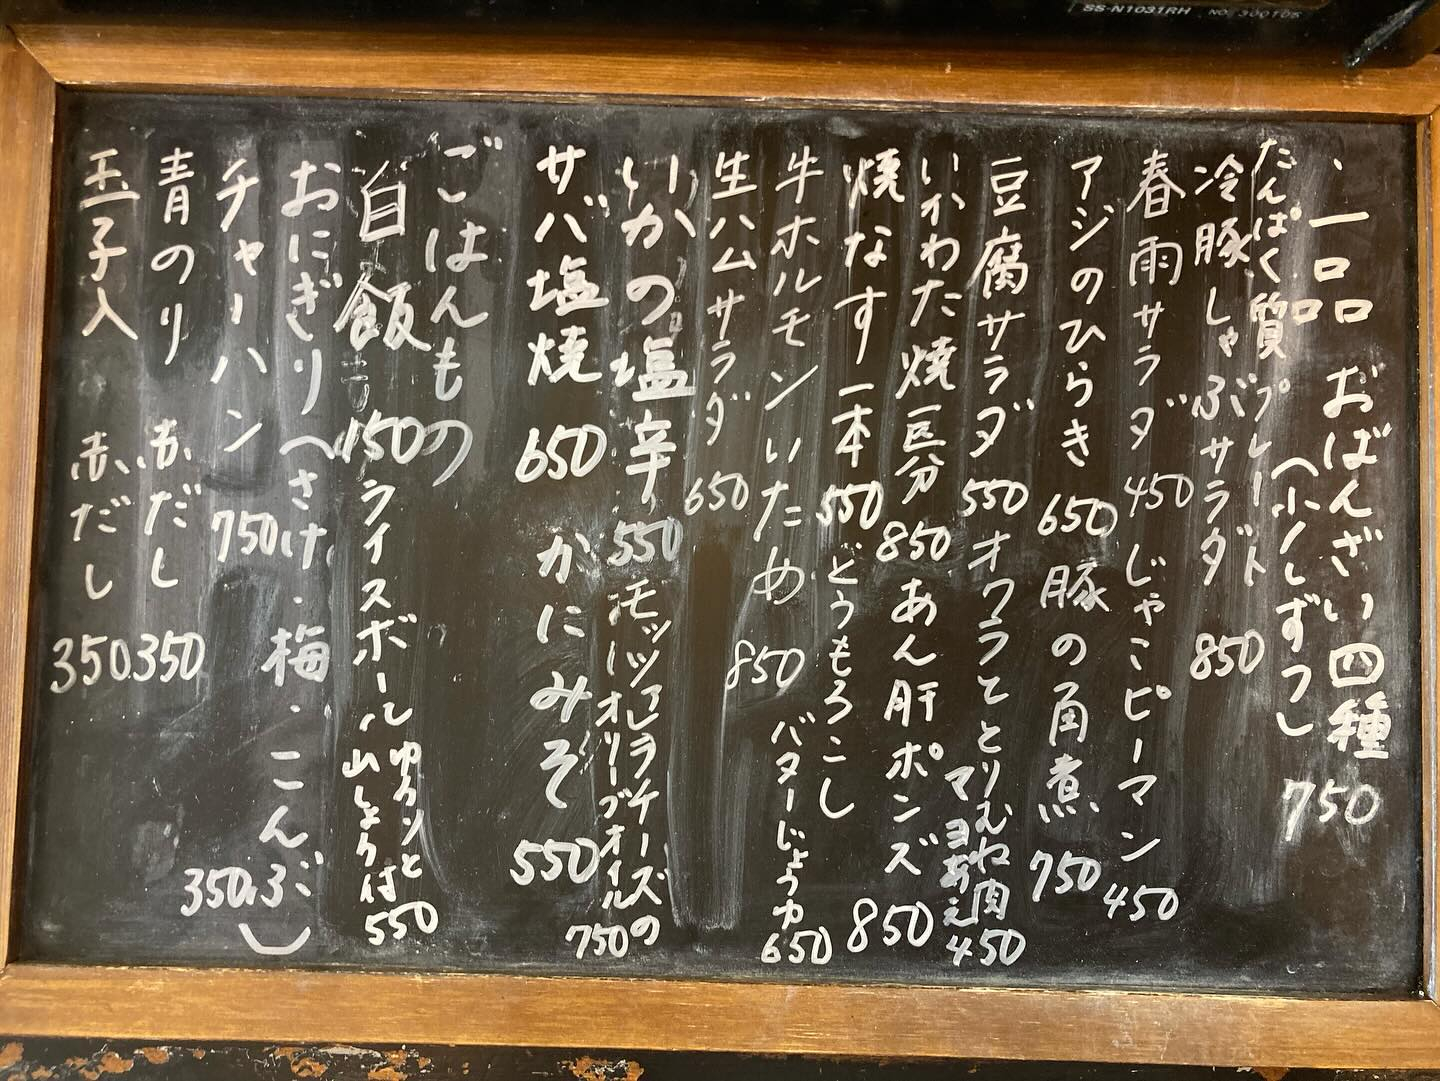 SS-N1031RH NO. 300105
、一品
おばんざい四種
(少しずつ) 750
たんぱく質プレート
冷豚しゃぶサラダ 850
春雨サラダ 450
じゃこピーマン 450
アジのひらき 650
豚の角煮 750
豆腐サラダ 550
オクラととりむね肉
マヨあえ 450
いかわた焼 一杯分 850
あん肝ポンズ 850
焼なす一本 550
とうもろこし
バターじょうゆ 650
牛ホルモンいため 850
生ハムサラダ 650
いかの塩辛 550
モッツァレラチーズの
オリーブオイル 750
サバ塩焼 650
かにみそ 550
ごはんもの
白飯 150
ライスボール
ゆかりと
山しょう付 550
おにぎり(さけ・梅・こんぶ) 350
チャーハン 750
青のり 赤だし 350
玉子入 赤だし 350